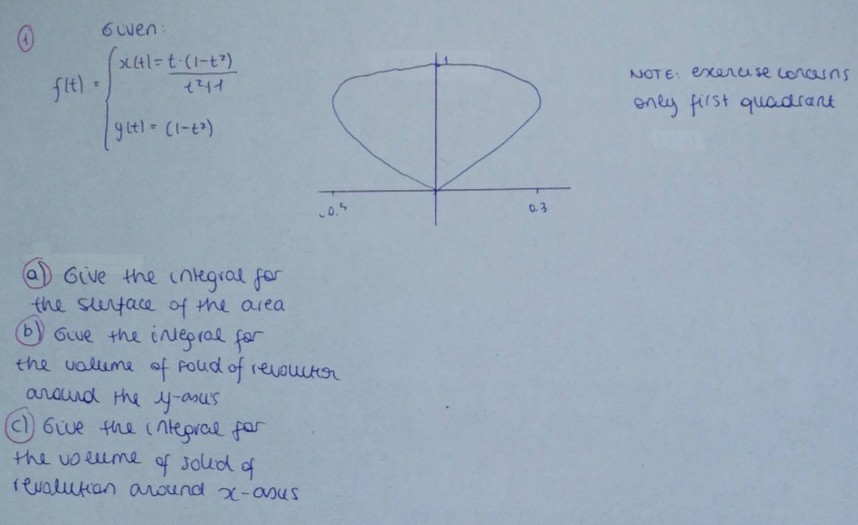 ① Given:
f(t) = { x(t) = t·(1-t²) / t²+1
y(t) = (1-t²)
1
-0.3
0.3
NOTE: exercise concerns
only first quadrant
a) Give the integral for
the surface of the area
b) Give the integral for
the volume of solid of revolution
around the y-axis
c) Give the integral for
the volume of solid of
revolution around x-axis